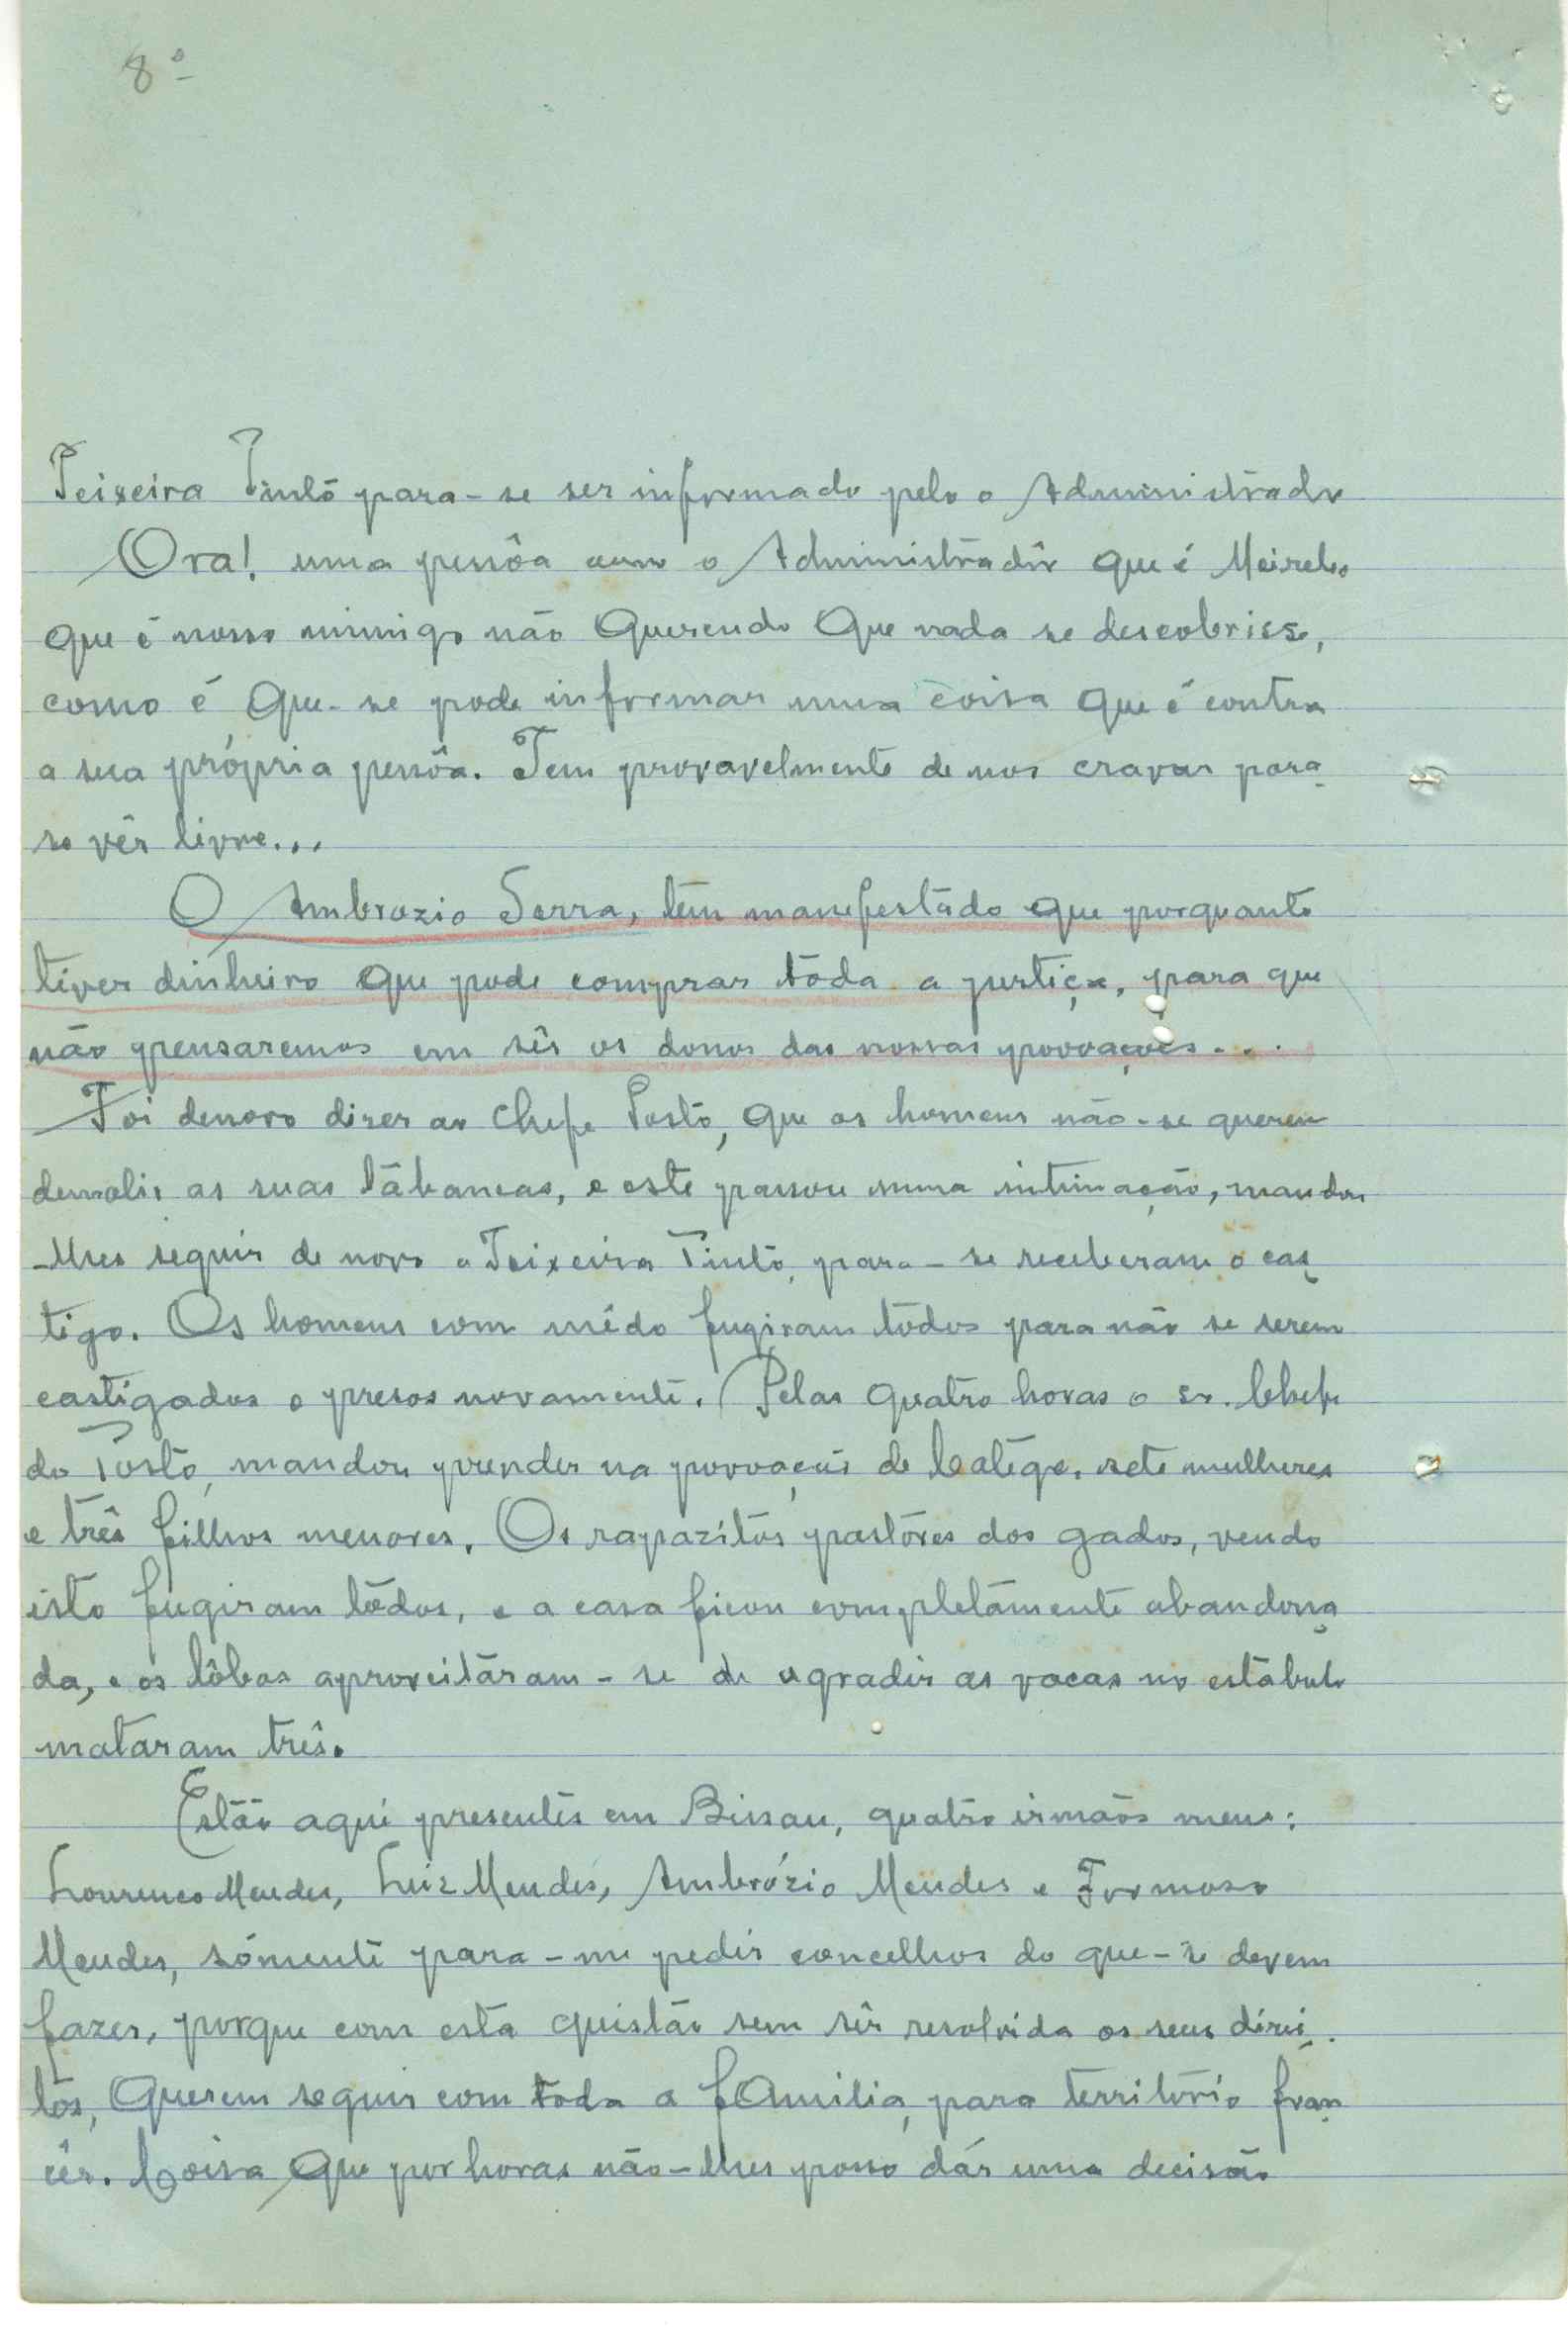 8º
Teixeira Pinto para-se ser informado pelo o Administrador
Ora! uma pessôa como o Administradôr que é Meireles
que é nosso inimigo não querendo que nada se descobrisse,
como é que-se pode informar uma coisa que é contra
a sua própria pessôa. Tem provavelmente de nos cravar para
se vêr livre...
O Ambrozio Serra, tem manifestado que porquanto
tiver dinheiro que pode comprar tôda a justiça, para que
não pensaremos em sêr os donos das nossas provoações...
Foi denovo dizer ao Chefe Posto, que os homens não-se querem
demolir as suas tábancas, e este passou numa intimação, mandou
-lhes seguir de novo a Teixeira Pinto, para-se receberam o cas
tigo. Os homens com mêdo fugiram tôdos para não se serem
castigados e presos novamente. Pelas quatro horas o sr. Chefe
do Posto, mandou prender na provoação de Catêqe, sete mulheres
e três filhos menores. Os rapazitos pastôres dos gados, vendo
isto fugiram tôdos, e a casa ficou completamente abandona
da, e os lôbos aproveitáram-se de agradir as vacas no estabulo
mataram três.
Estão aqui presentes em Bissau, quatro irmãos meus:
Lourenco Mendes, Luiz Mendes, Ambrózio Mendes e Formoso
Mendes, sómente para-me pedir concelhos do que-se devem
fazer, porque com esta quistão sem sêr resolvida os seus direi
tos, querem seguir com toda a família, para território fran
cês. Coisa que por horas não-lhes posso dár uma decisão